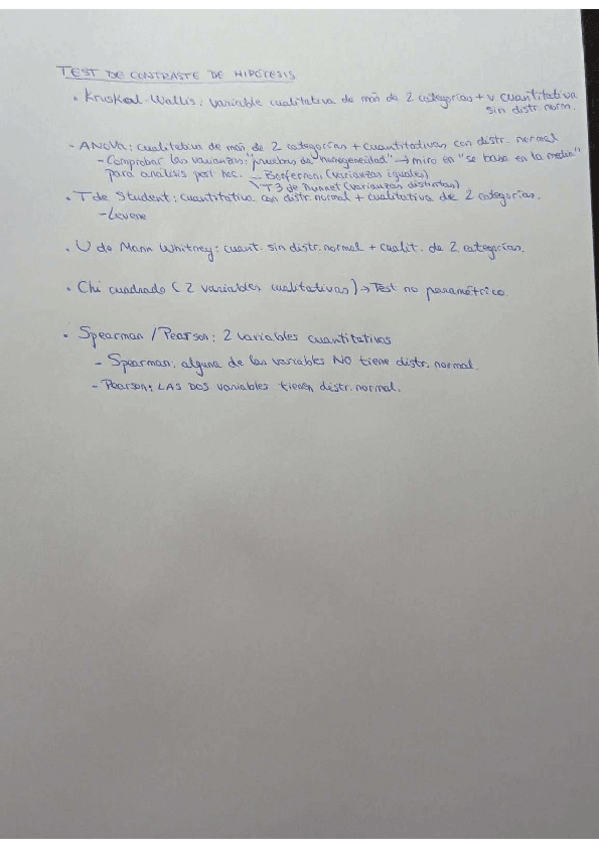 TEST DE CONTRASTE DE HIPÓTESIS
• Kruskal-Wallis: variable cualitativa de más de 2 categorías + v cuantitativa
sin distr. norm.
- ANOVA: cualitativa de más de 2 categorías + cuantitativas con distr. normal
- Comprobar las varianzas: "pruebas de homogeneidad" → miro en "se basa en la media"
para análisis post hoc. - Bonferroni (varianzas iguales)
T3 de Dunnet (varianzas distintas)
• T de Student: cuantitativa con distr. normal + cualitativa de 2 categorías.
- Levene
• U de Mann Whitney: cuant. sin distr. normal + cualit. de 2 categorías.
• Chi cuadrado (2 variables cualitativas) → Test no paramétrico.
• Spearman / Pearson: 2 variables cuantitativas
- Spearman: alguna de las variables NO tiene distr. normal.
- Pearson: LAS DOS variables tienen distr. normal.